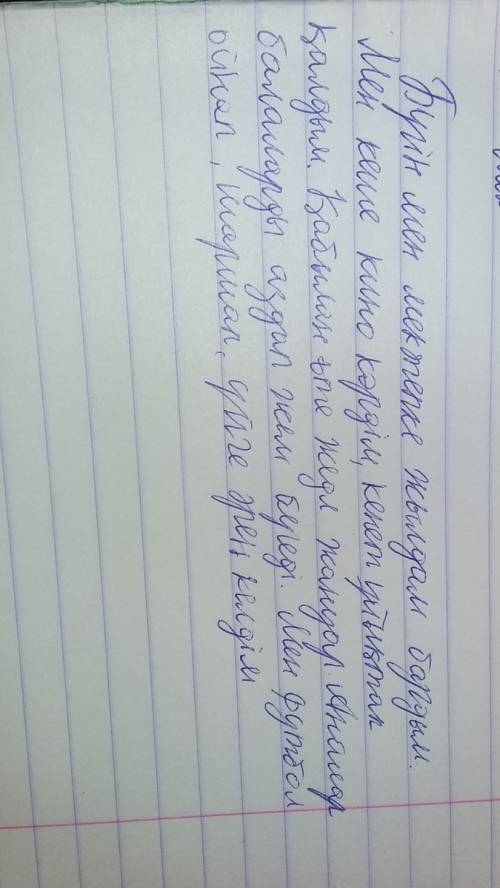 Бүгін мен мектепке жылдам бардым.
Мен кеше кино көрдім, кенет ұйықтап
қалдым. Қабылан өте жедел жануар. Аналар
балаларды аздап жем береді. Мен футбол
ойнап, шаршап, үйге әрең келдім